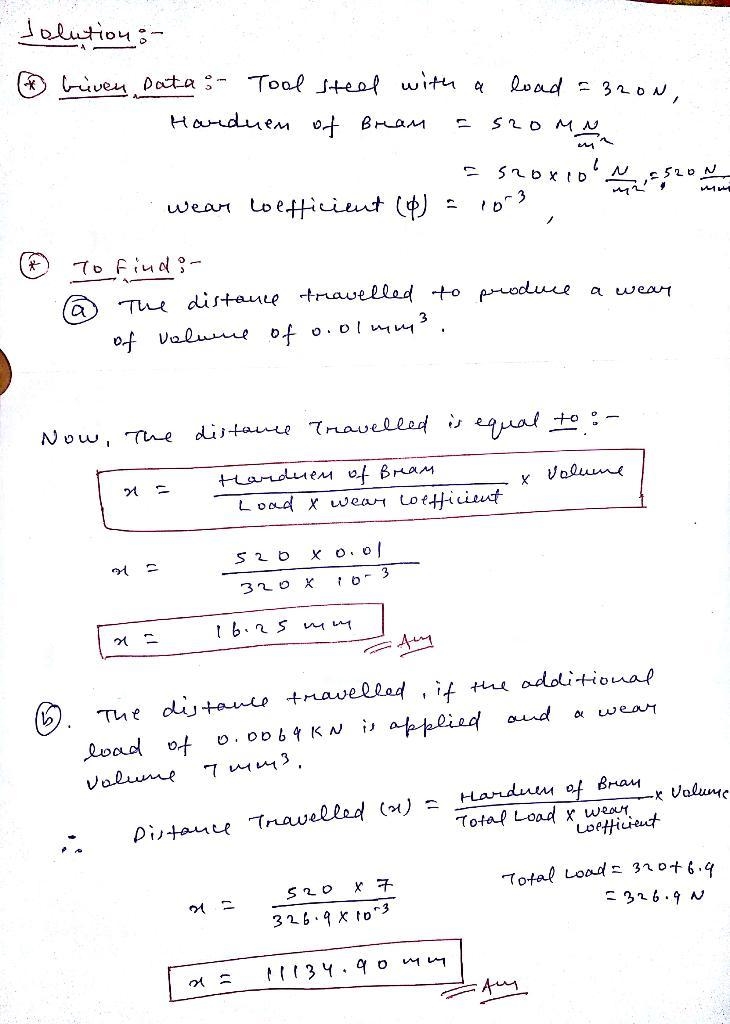 Solution :-
(*) Given Data :- Tool steel with a load = 320N,
Hardness of Brass = 520 MN/m²
= 520 x 10⁶ N/m², = 520 N/mm
wear coefficient (φ) = 10⁻³,
(*) To Find :-
(a) The distance travelled to produce a wear
of volume of 0.01 mm³.
Now, The distance Travelled is equal to :-
x = Hardness of Brass / Load x wear coefficient x Volume
x = 520 x 0.01 / 320 x 10⁻³
x = 16.25 mm Ans
(b). The distance travelled, if the additional
load of 0.0069 KN is applied and a wear
volume 7 mm³.
∴ Distance Travelled (x) = Hardness of Brass / Total Load x wear coefficient x Volume
x = 520 x 7 / 326.9 x 10⁻³
Total Load = 320+6.9
= 326.9 N
x = 11134.90 mm Ans